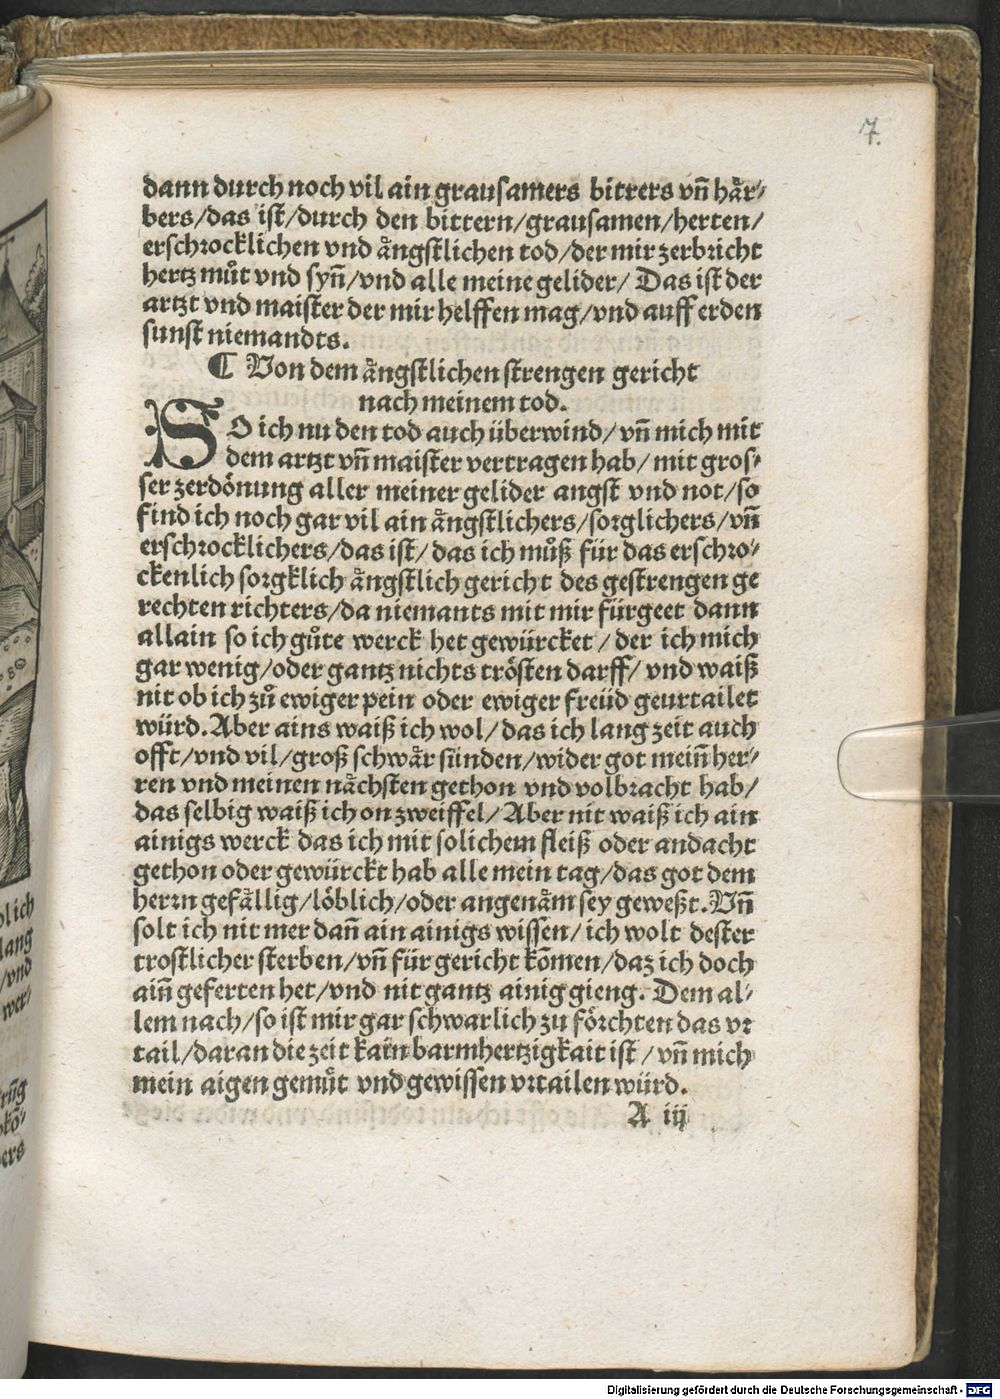 7.
dann durch noch vil ain grausamers bittrers vn̄ haͤr⸗
bers/das ist/durch den bittern/grausamen/herten/
erschrocklichen vnd aͤngstlichen tod/der mir zerbricht
hertz muͦt vnd syn̄/vnd alle meine gelider/ Das ist der
artzt vnd maister der mir helffen mag/vnd auff erden
sunst niemandts.
¶ Von dem aͤngstlichen strengen gericht
nach meinem tod.
SO ich nu den tod auch überwind/ vn̄ mich mit
dem artzt vn̄ maister vertragen hab/ mit gros⸗
ser zerdoͤnung aller meiner gelider angst vnd not/so
find ich noch gar vil ain aͤngstlichers/sorglichers/vn̄
erschrocklichers/das ist/ das ich muͦß für das erschro⸗
ckenlich sorgklich aͤngstlich gericht des gestrengen ge
rechten richters/da niemants mit mir fürgeet dann
allain so ich guͦte werck het gewürcket/ der ich mich
gar wenig/oder gantz nichts troͤsten darff/ vnd waiß
nit ob ich zuͦ ewiger pein oder ewiger freüd geurtailet
würd. Aber ains waiß ich wol/das ich lang zeit auch
offt/vnd vil/groß schwaͤr sünden/wider got mein̄ her⸗
ren vnd meinen naͤchsten gethon vnd volbracht hab/
das selbig waiß ich on zweiffel/ Aber nit waiß ich ain
ainigs werck das ich mit solichem fleiß oder andacht
gethon oder gewürckt hab alle mein tag/das got dem
herrn gefaͤllig/loͤblich/oder angenaͤm sey geweßt. Vn̄
solt ich nit mer dan̄ ain ainigs wissen/ ich wolt dester
trostlicher sterben/vn̄ für gericht kōmen/daz ich doch
ain̄ geferten het/vnd nit gantz ainig gieng. Dem al⸗
lem nach/so ist mir gar schwarlich zu foͤrchten das vr
tail/daran die zeit kain barmhertzigkait ist/vn̄ mich
mein aigen gemuͤt vnd gewissen vrtailen würd.
A iij
lich
lang
/vnd
wer/
ers
Digitalisierung gefördert durch die Deutsche Forschungsgemeinschaft - DFG